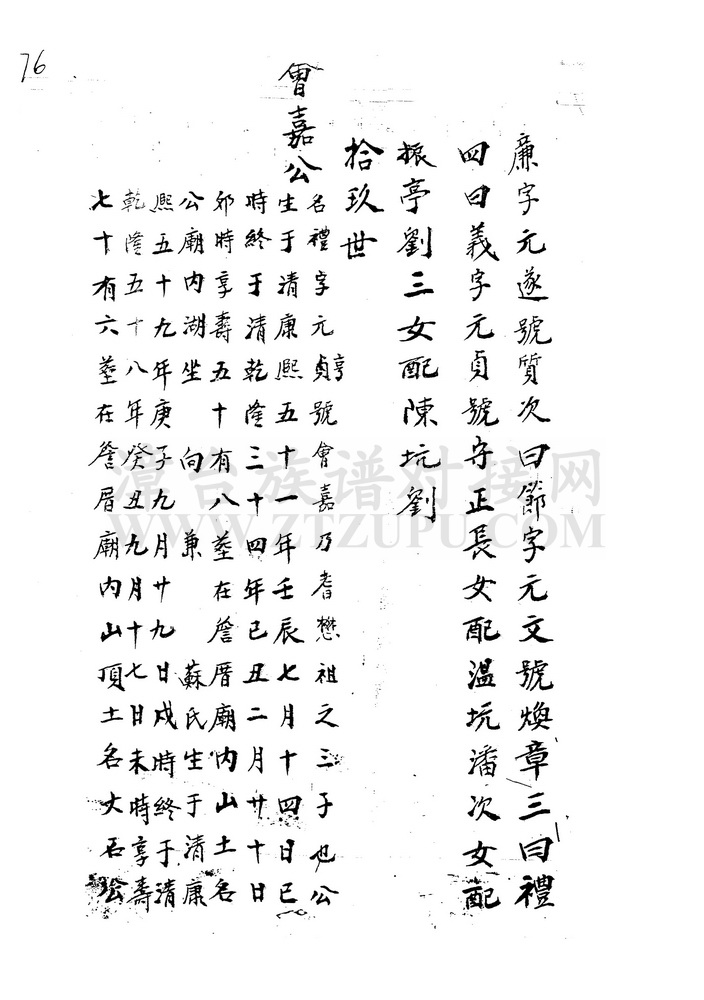 76
廉字元遂號質次曰節字元文號煥章三曰禮
四曰義字元貞號守正長女配溫坑潘次女配
振亭劉三女配陳坑劉
拾玖世
會嘉公
名禮字元貞亨號會嘉乃耆懋祖之三子也公
生于清康熙五十一年壬辰七月十四日巳
時終于清乾隆三十四年己丑二月廿十日
卯時享壽五十有八塟在詹厝廟內山土名
公廟內湖坐 向 兼 蘇氏生于清康
熙五十九年庚子九月廿九日戌時終于清
乾隆五十八年癸丑九月十七日未時享壽
七十有六塟在詹厝廟內山頂土名大石公
漳台族谱对接网
WWW.ZTZUPU.COM